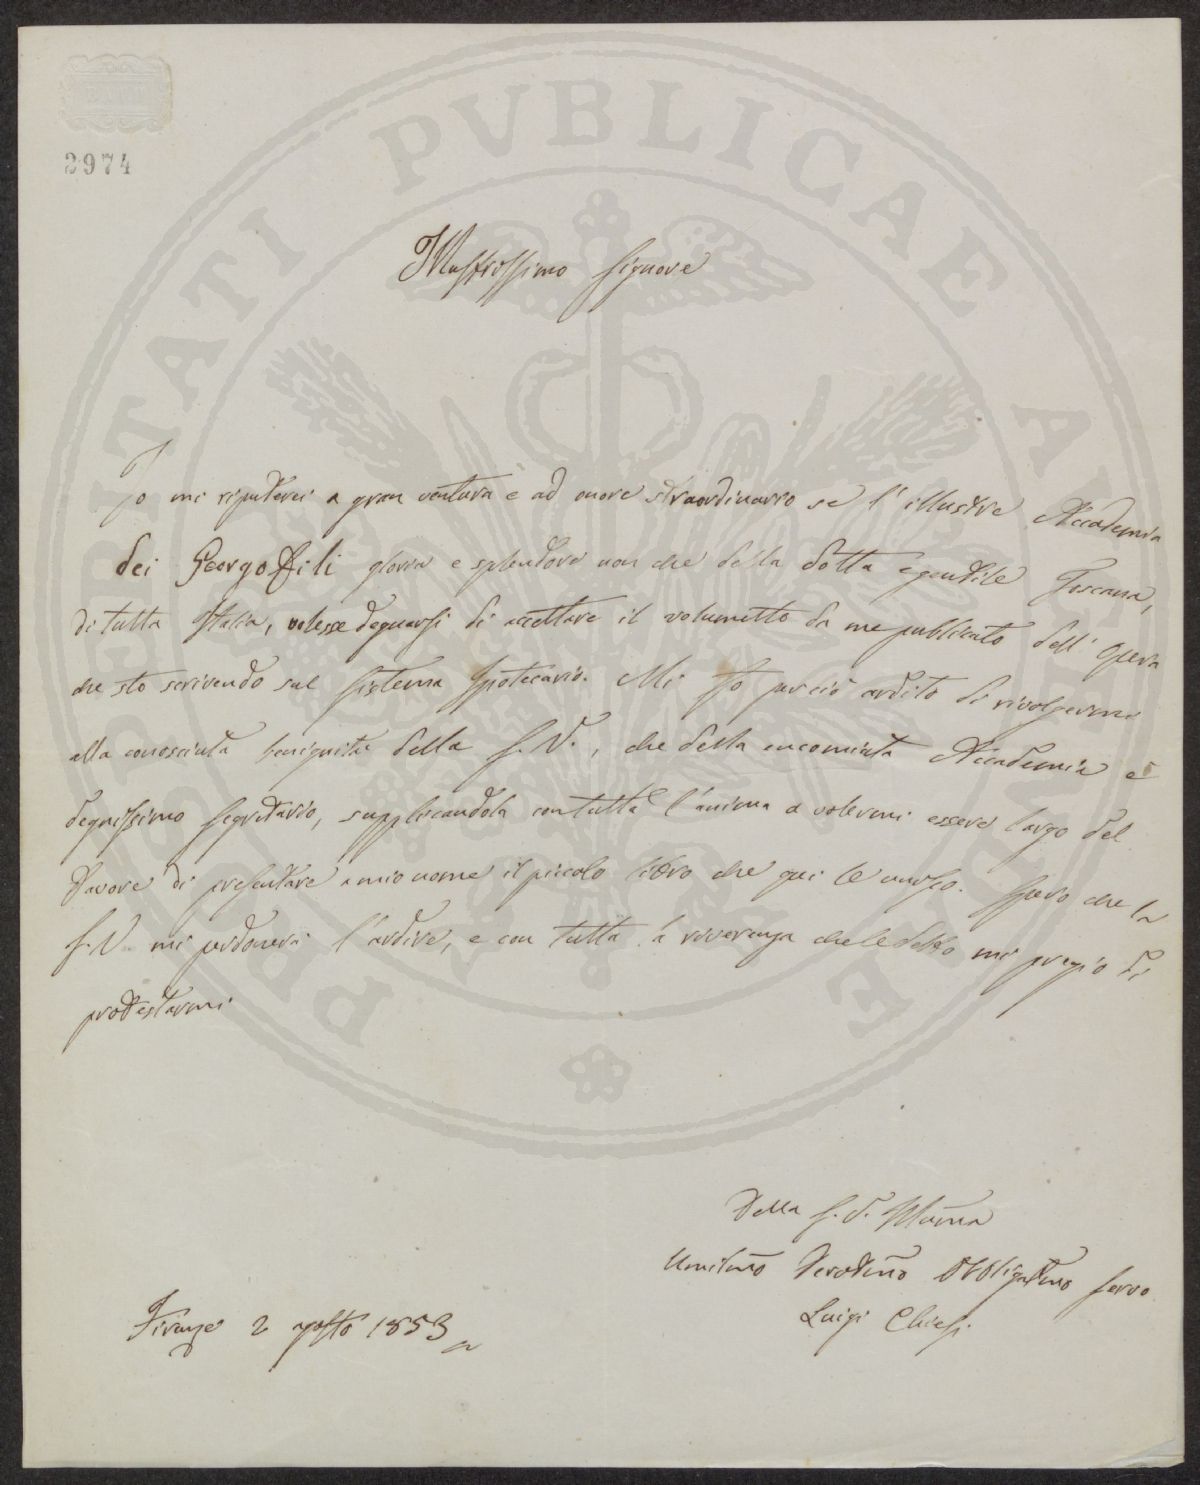 PROSPERITATI PVBLICAE AVGENDAE
BATH
2974
Illustrissimo Signore
Io mi riputerei a gran ventura e ad onore straordinario se l'illustre Accademia
dei Georgofili gloria e splendore non che della dotta e gentile Toscana,
di tutta Italia, volesse degnarsi di accettare il volumetto da me publicato dell'opera
che sto scrivendo sul sistema Ipotecario. Mi fo perciò ardito di rivolgermi
alla conosciuta benignità della S. V., che della encomiata Accademia è
degnissimo Segretario, supplicandola con tutta l'anima a volermi essere largo del
favore di presentare a mio nome il piccolo libro che qui le unisco. Spero che la
S. V. mi perdonerà l'ardire, e con tutta la riverenza che le debbo mi pregio di
protestarmi
Della S. V. Illma
Umilmo Devotmo Obbligatmo servo
Luigi Chiesi
Firenze 2 agosto 1853